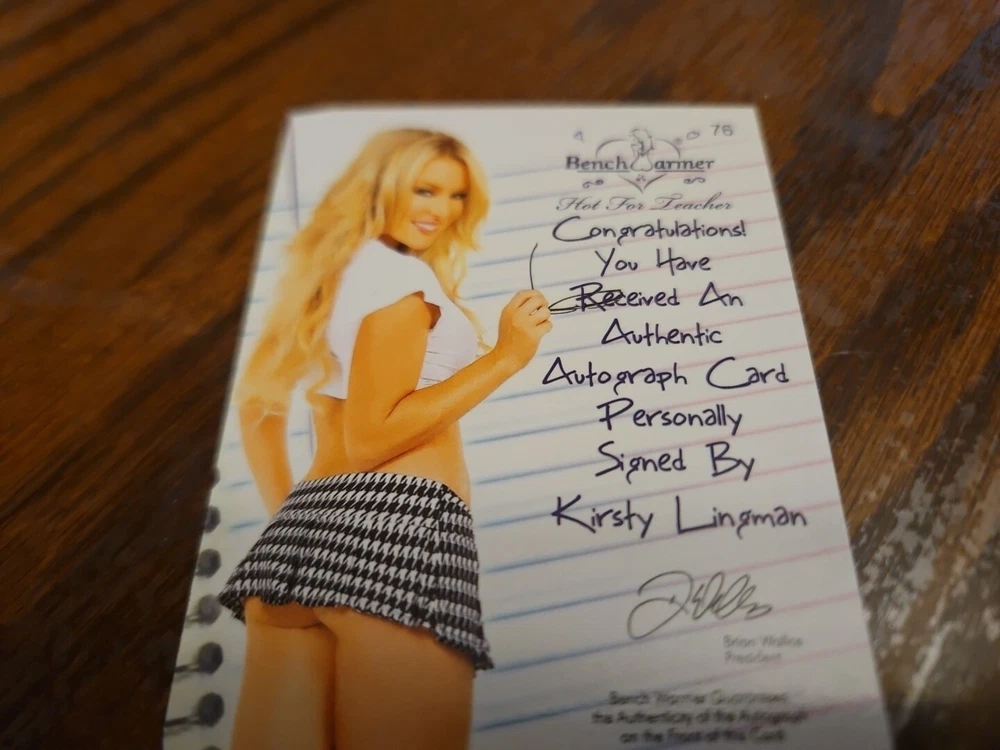 76
BenchWarmer
Hot For Teacher
Congratulations!
You Have
Received An
Authentic
Autograph Card
Personally
Signed By
Kirsty Lingman
President
Bench Warmer Guarantees
the Authenticity of the Autograph
on the Front of this Card